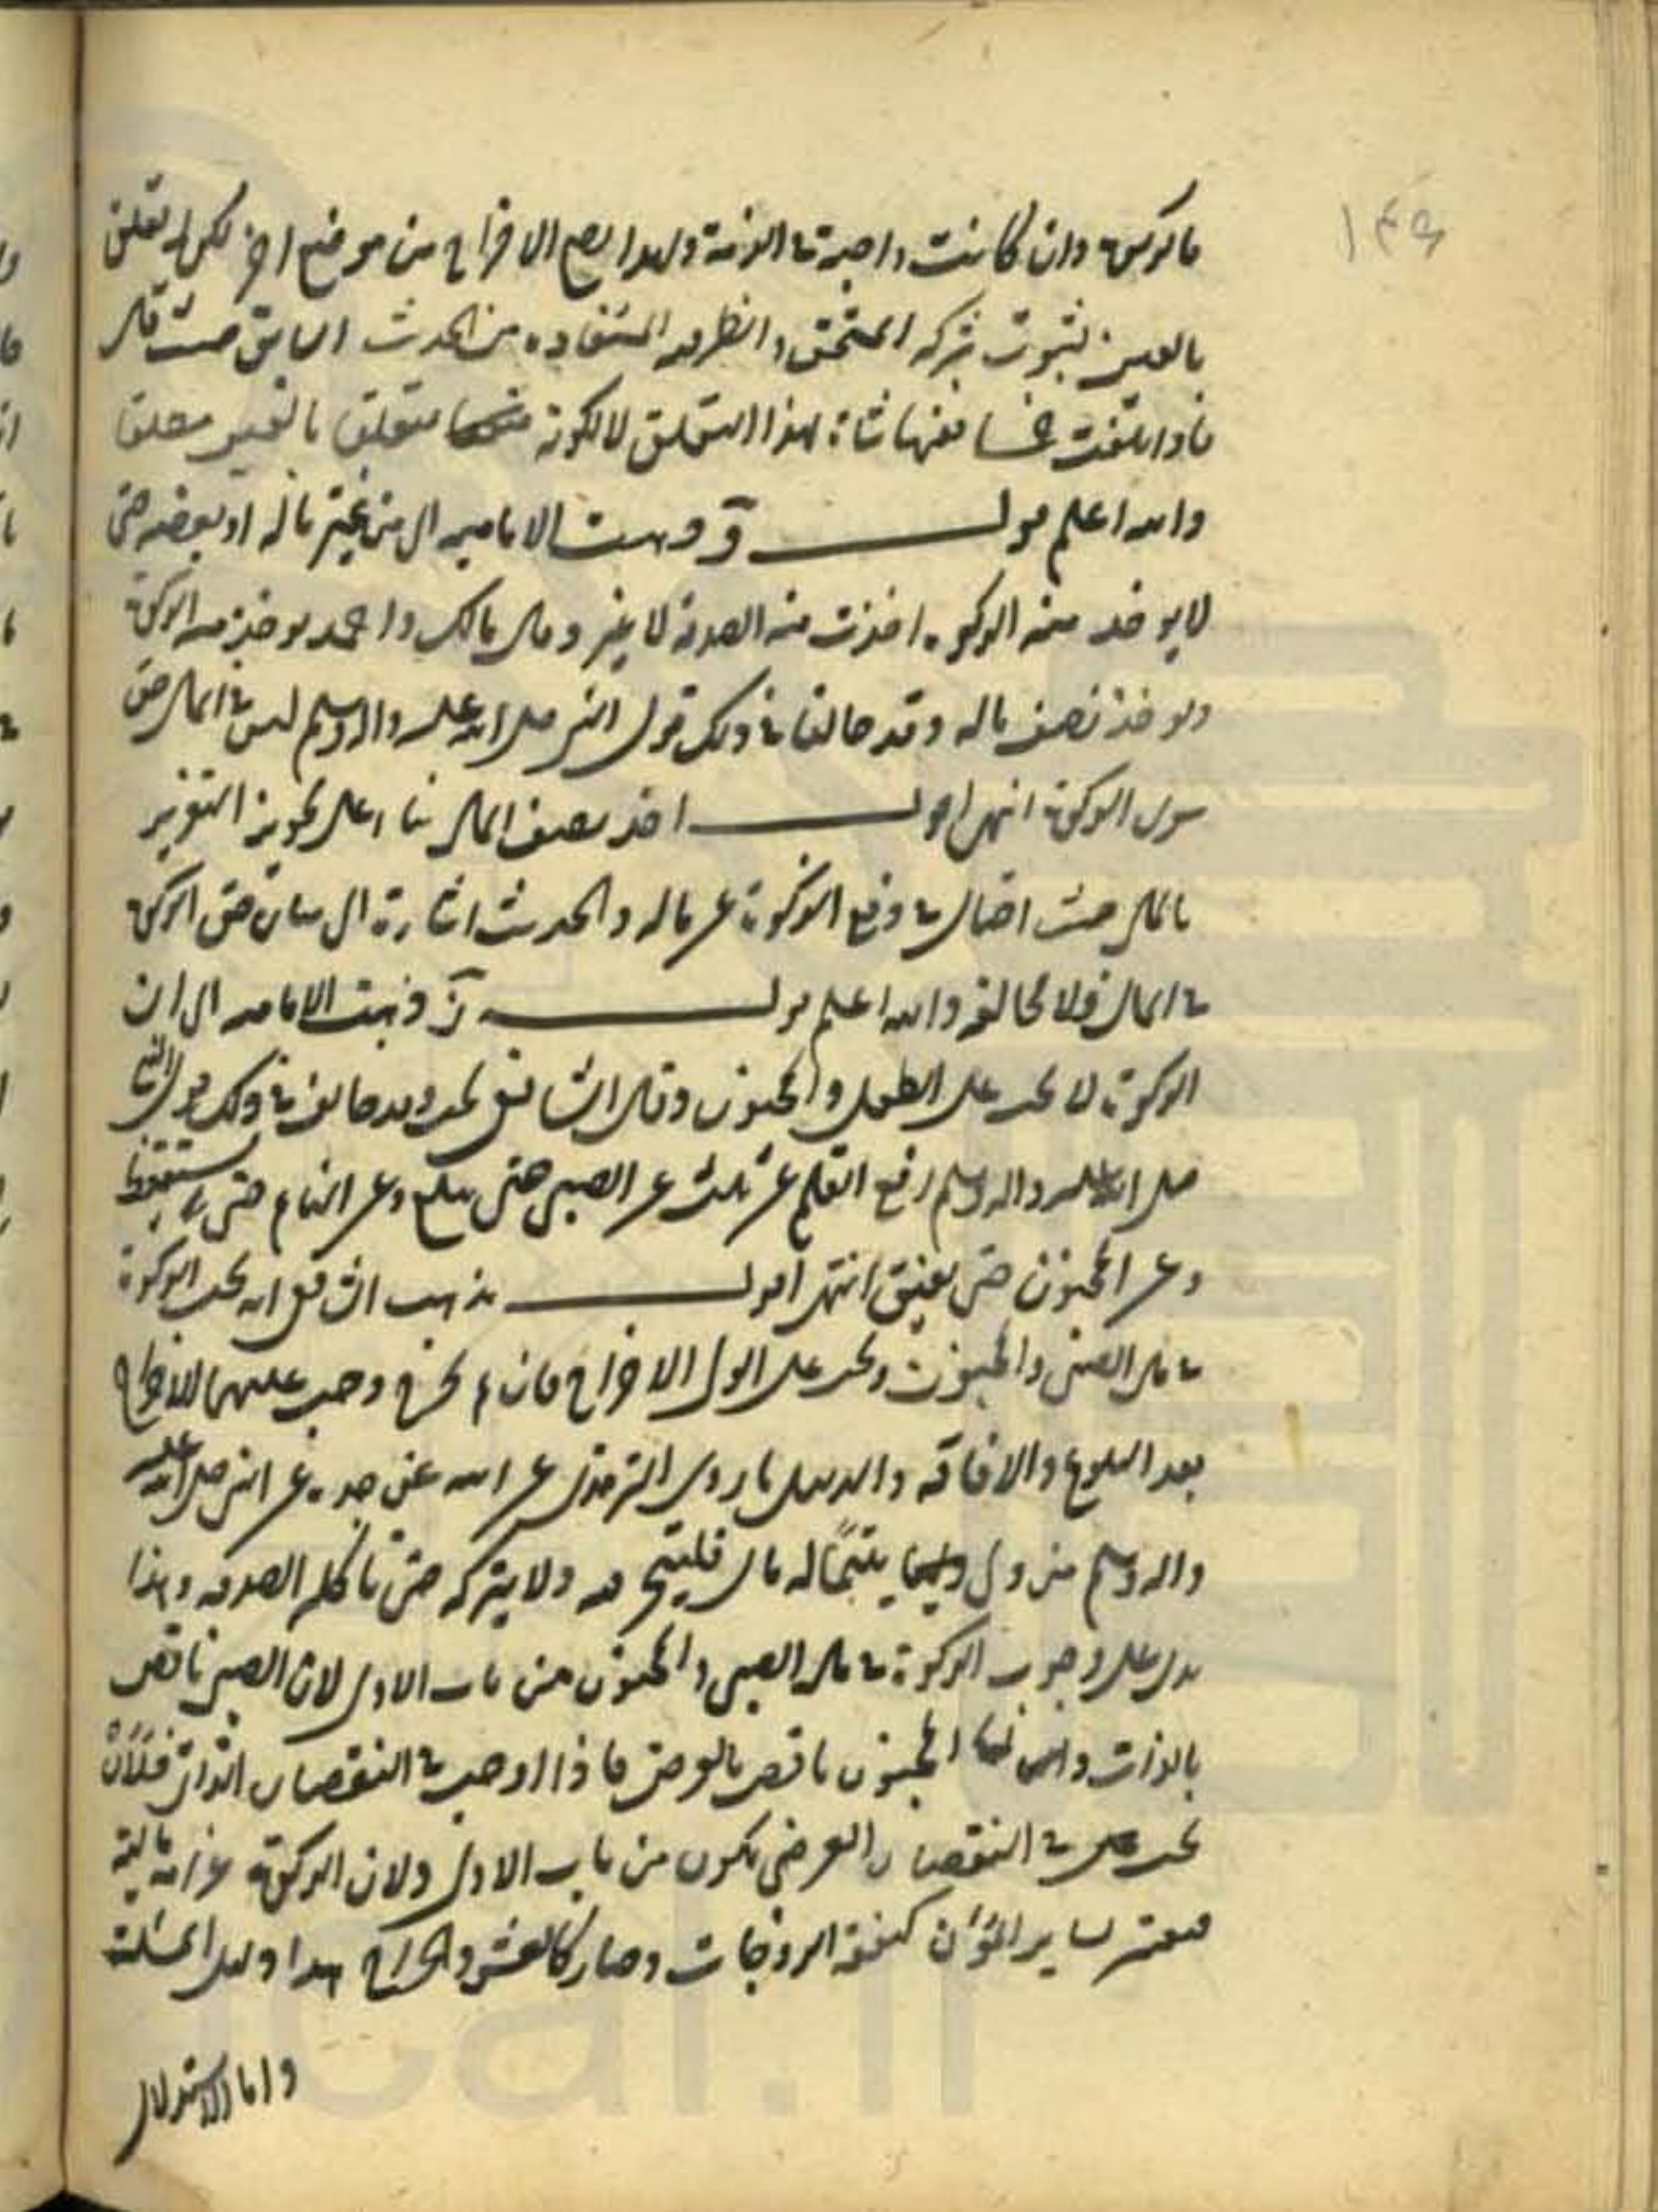 ۱۴۶
فالزكوة وان كانت واجبة في الذمة ولهذا يصح الاخراج من موضع اخر لكن له تعلق
بالعين لثبوت شركة المستحق والظرفية المستفاده من الحديث السابق حيث قال
فاذا بلغت خمسا ففيها شاة لهذا التعلق لا لكونه متعلق بالعين مطلقا
والله اعلم قولـــه و ذهبت الامامية الى من غير ماله او بعضه حتى
لا يوخذ منه الزكوه اخذت منه الصدقة لا غير وقال مالك واحمد يوخذ منه الزكوة
ويوخذ نصف ماله وقد خالفا في ذلك قول النبي صلى الله عليه واله وسلم ليس في المال حق
سوى الزكوة انتهى اقولـــه اخذ نصف المال بناء على تجويز التعزير
بالمال حيث احتال في دفع الزكوة عن ماله والحديث اشارة الى بيان حق الزكوة
في المال فلا مخالفة والله اعلم قولـــه ز ذهبت الامامية الى ان
الزكوة لا تجب على الطفل والمجنون وقال الشافعى تجب وقد خالف في ذلك قول النبي
صلى الله عليه واله وسلم رفع القلم عن ثلث عن الصبى حتى يبلغ وعن النائم حتى يستيقظ
وعن المجنون حتى يفيق انتهى اقولـــه مذهب الشافعى انه تجب الزكوة
في مال الصبى والمجنون وتجب على الولى الاخراج فان لم يخرج وجب عليهما الاخراج
بعد البلوغ والافاقة والدليل ما روى الترمذى عن ابيه عن جده عن النبى صلى الله عليه
واله وسلم من ولى يتيمًا له مال فليتجر فيه ولا يتركه حتى تاكله الصدقه وهذا
يدل على وجوب الزكوة في مال الصبى والمجنون من باب الاولى لان الصبى ناقص
بالذات والمجنون ناقص بالعرض فاذا اوجب في النقصان الذاتى فلأن
تجب في النقصان العرضى يكون من باب الاولى ولان الزكوة غرامة مالية
فيعتبر بساير المؤن كنفقة الزوجات وصار كالعشر والخراج هذا دليل المسئلة
واما الاستدلال